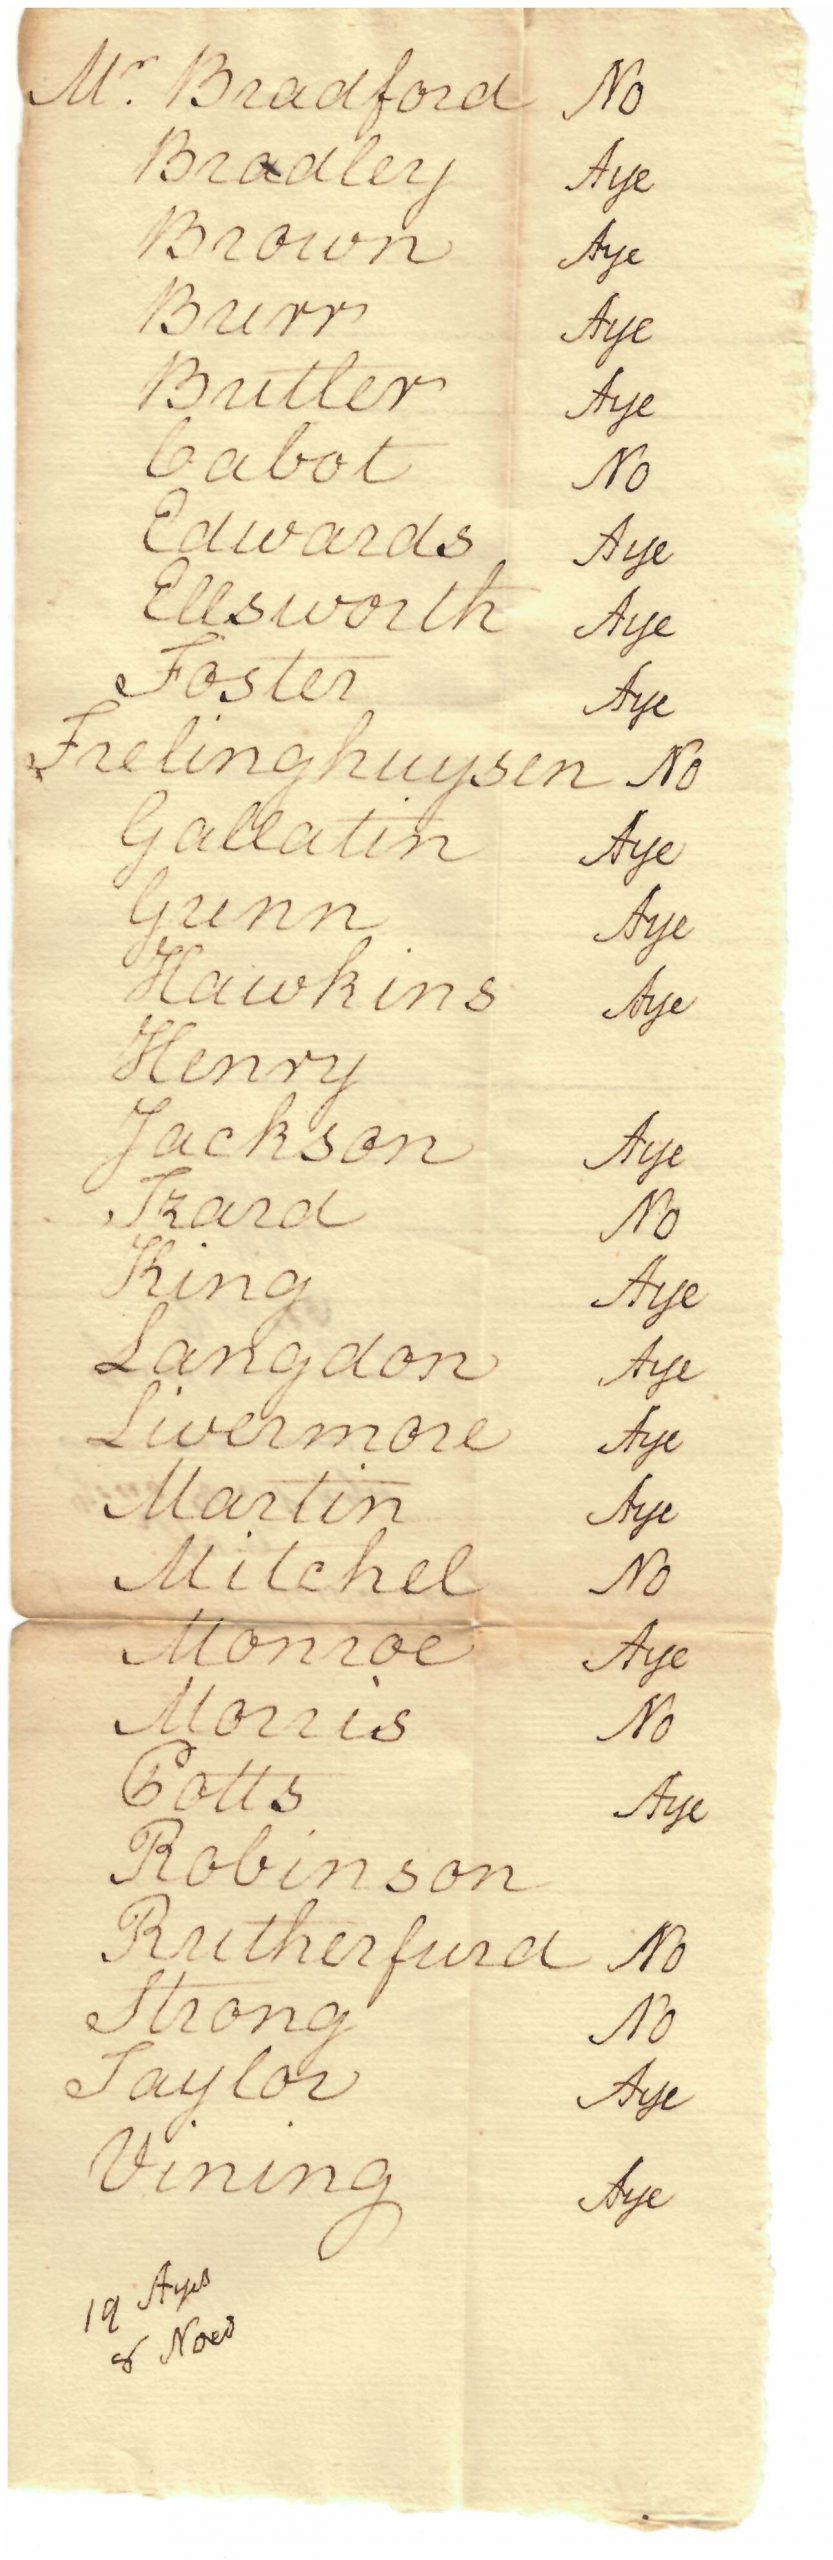 Mr. Bradford No
Bradley Aye
Brown Aye
Burr Aye
Butler Aye
Cabot No
Edwards Aye
Ellsworth Aye
Foster Aye
Frelinghuysen No
Gallatin Aye
Gunn Aye
Hawkins Aye
Henry
Jackson Aye
Izard No
King Aye
Langdon Aye
Livermore Aye
Martin Aye
Mitchel No
Monroe Aye
Morris No
Potts Aye
Robinson
Rutherfurd No
Strong No
Taylor Aye
Vining Aye
19 Ayes
8 Noes